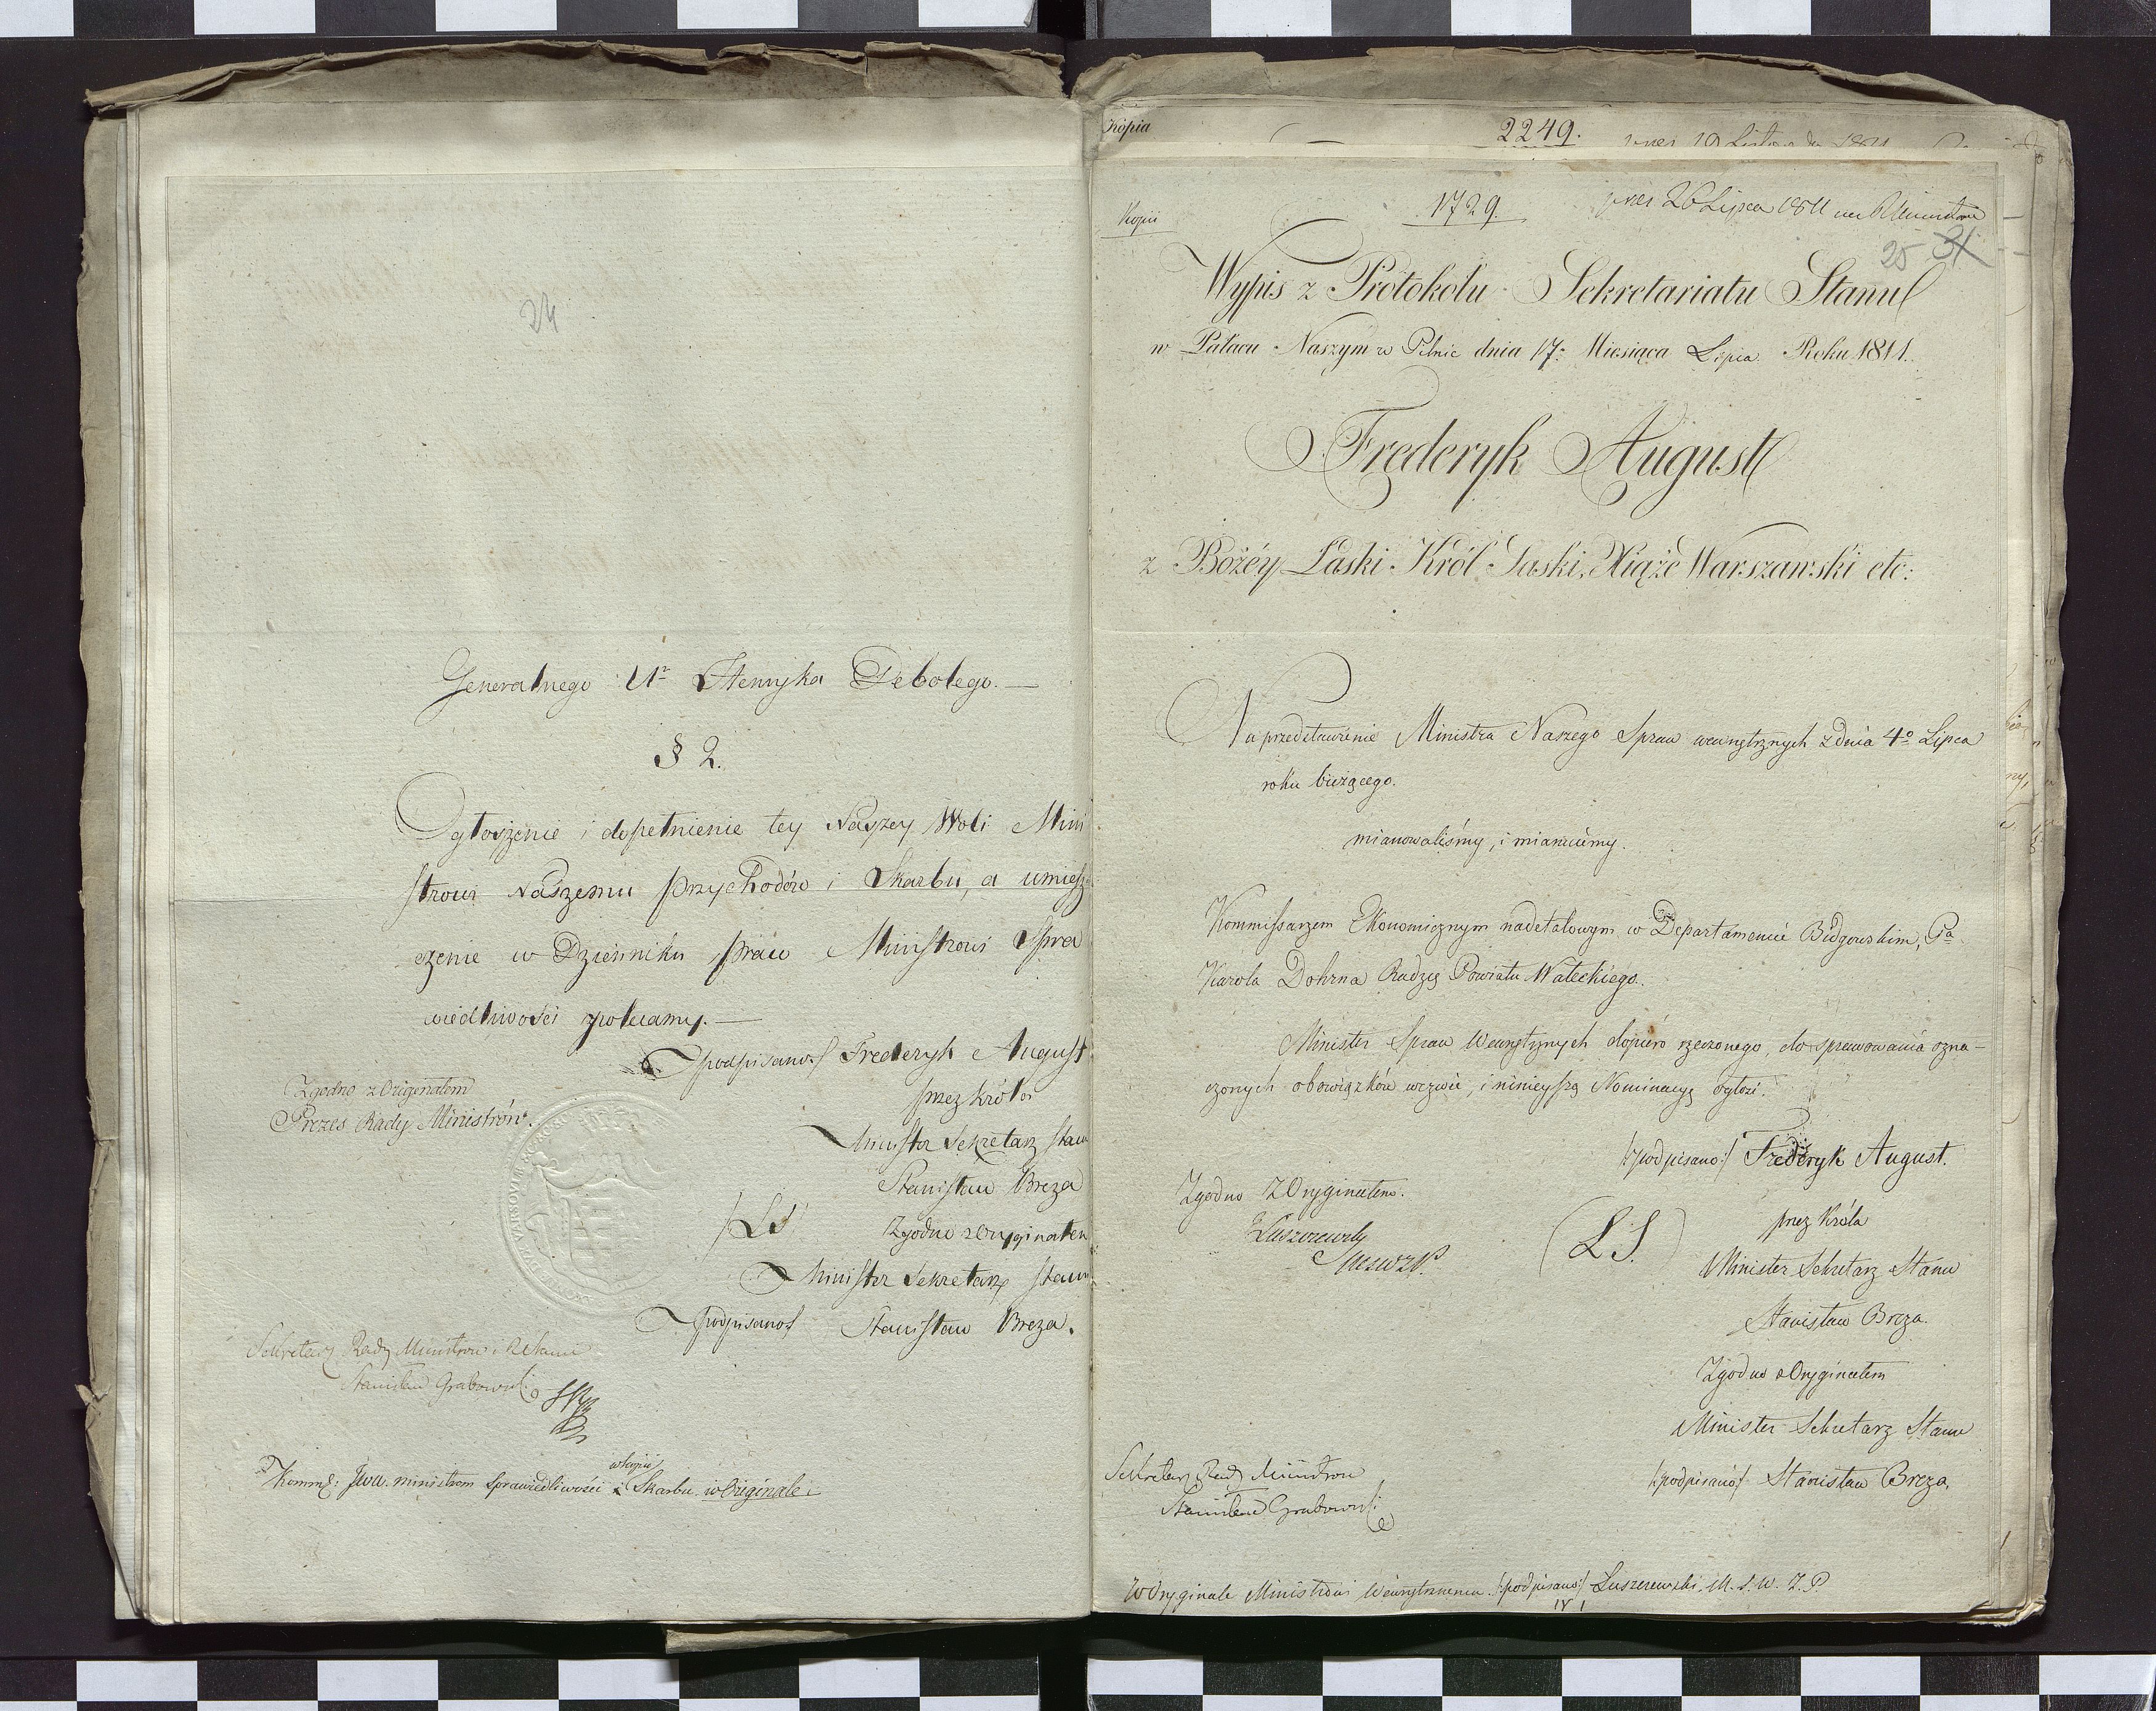 24
Generalnego Ur Henryka Debolego. —
§ 2.
Ogłoszenie i dopełnienie tey Naszey Woli Mini
strowi Naszemu Przychodów i Skarbu, a umiesz
czenie w Dzienniku praw Ministrowi Spra
wiedliwości zolecamy. —
podpisano/ Frederyk August
przez Króla
Minister Sekretarz Stanu
Stanisław Breza
/LS/ Zgodno z Oryginałem
Minister Sekretarz Stanu
/podpisano/ Stanisław Breza.
Zgodno z Originałem
Prezes Rady Ministrów.
Sekretarz Rady Ministrow i R Stanu
Stanisław Grabowski
w kopii
Kommd: Jww. ministrom Sprawiedliwości i Skarbu w Originale
Kopia 2249. 19 Listopada 1811
Kopii 1729. prez 26 Lipca 1811
25 31
Wypis z Protokołu Sekretariatu Stanu
w Pałacu Naszym w Pilnic dnia 17: Miesiąca Lipca Roku 1811.
Frederyk August
z Bożéy Łaski Król Saski, Xiąże Warszawski etc:
Na przedstawienie Ministra Naszego Spraw wewnętrznych z dnia 4o Lipca
roku bieżącego.
mianowaliśmy, i mianuiemy.
Kommissarzem Ekonomicznym nadetatowym w Departamencie Bidgowskim, Pa
Karola Dohrna Radzcę Powiatu Wałeckiego.
Minister Spraw Wewnętrznych dopiéro rzeczonego, do sprawowania ozna-
czonych obowiązków wezwie, i ninieyszą Nominacyą ogłosi.
/:podpisano:/ Frederyk August.
przez Króla
(L.S.)
Minister Sekretarz Stanu
Stanisław Breza.
Zgodno z Oryginałem
Minister Sekretarz Stanu
/:podpisano/ Stanisław Breza.
Zgodno z Oryginałem.
Łuszczewski
Sekretarz Rady Ministrow
Stanisław Grabowski
W Oryginale Ministrowi Wewnętrznemu /:podpisano:/ Łuszczewski M. S. W. Z. P.